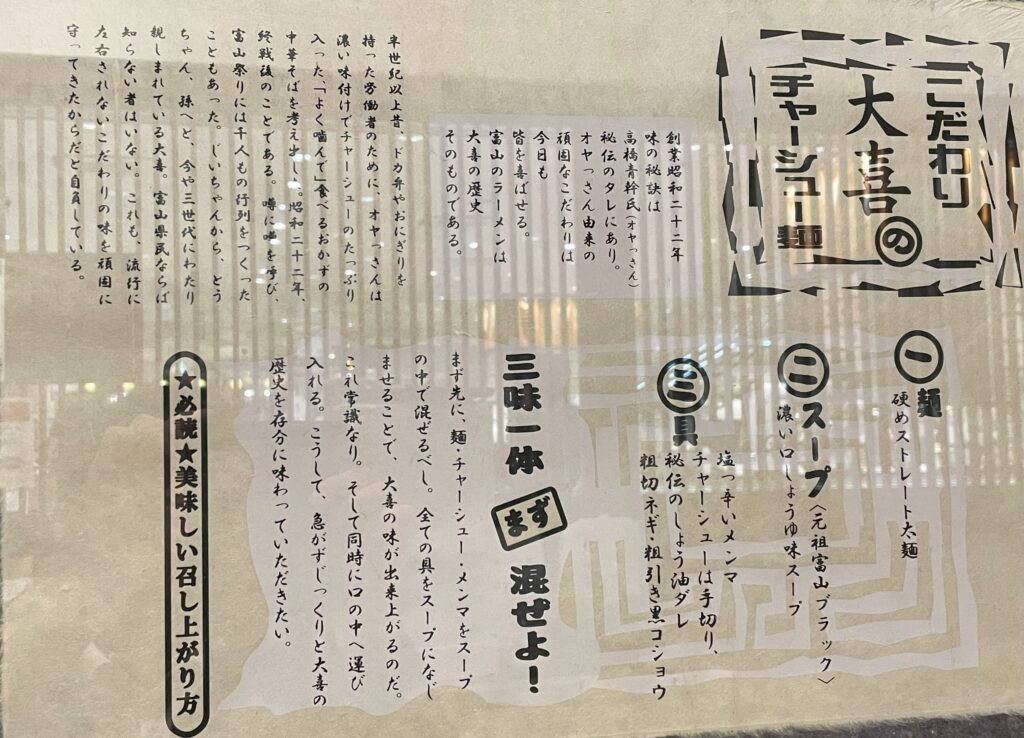 こだわり
大喜の
チャーシュー麺
創業昭和二十二年
味の秘訣は
高橋青幹氏(オヤっさん)
秘伝のタレにあり。
オヤっさん由来の
頑固なこだわりは
今日も
皆を喜ばせる。
富山のラーメンは
大喜の歴史
そのものである。
半世紀以上昔、ドカ弁やおにぎりを
持った労働者のために、オヤっさんは
濃い味付けでチャーシューのたっぷり
入った、「よく噛んで」食べるおかずの
中華そばを考え出した。昭和二十二年、
終戦後のことである。噂に噂を呼び、
富山祭りには千人もの行列をつくった
こともあった。じいちゃんから、とう
ちゃん、孫へと、今や三世代にわたり
親しまれている大喜。富山県民ならば
知らない者はいない。これも、流行に
左右されないこだわりの味を頑固に
守ってきたからだと自負している。
一 麺
硬めストレート太麺
二 スープ〈元祖富山ブラック〉
濃い口しょうゆ味スープ
三 具
塩っ辛いメンマ
チャーシューは手切り、
秘伝のしょう油ダレ
粗切ネギ・粗引き黒コショウ
三味一体 まず 混ぜよ!
まず先に、麺・チャーシュー・メンマをスープ
の中で混ぜるべし。全ての具をスープになじ
ませることで、大喜の味が出来上がるのだ。
これ常識なり。そして同時に口の中へ運び
入れる。こうして、急がずじっくりと大喜の
歴史を存分に味わっていただきたい。
★必読★美味しい召し上がり方